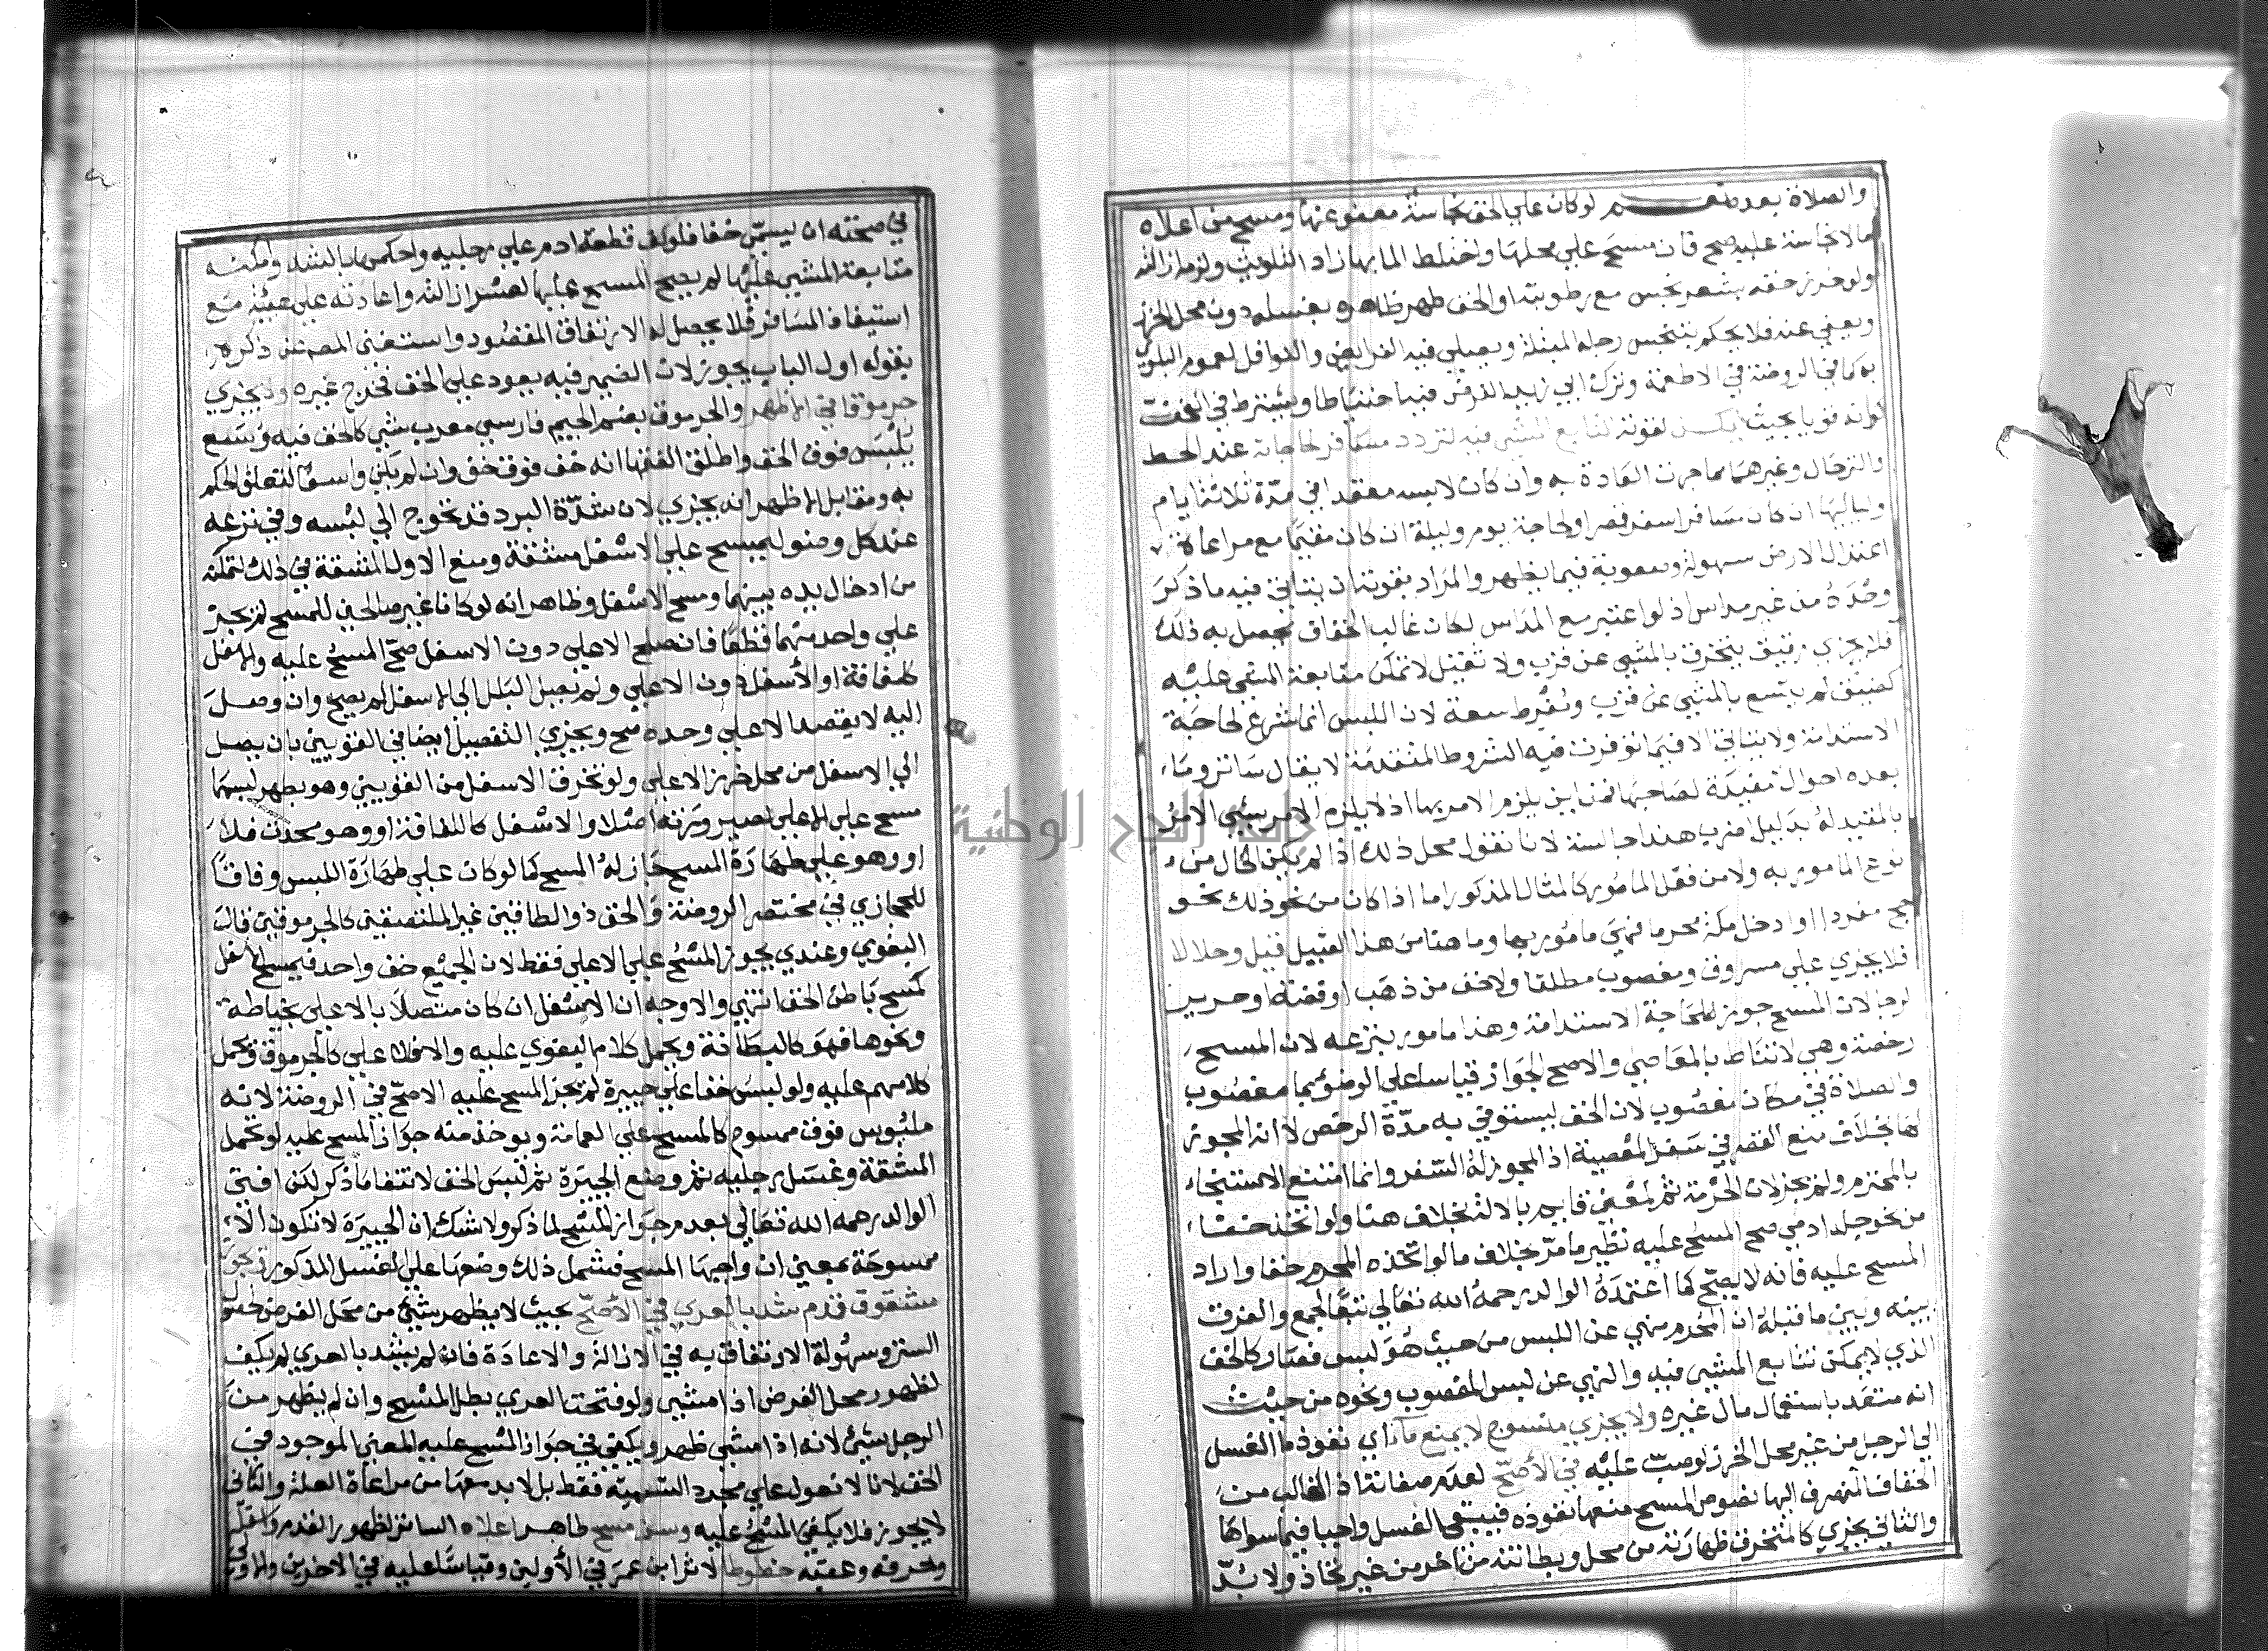 والصلاة بعد نعم لو كان علي الخف نجاسة معفو عنها ومسح من اعلاه
مالا نجاسة عليه صح فان مسح علي محلها واختلط الما بها زاد التلويث ولزم ازالته
ولو خرز خفه بشعر نجس مع رطوبته او الخف طهر ظاهره بغسله دون محل الخرز
ويعفي عنه فلا يحكم بتنجس رجله المبتلة ويصلي فيه الفرايض والنوافل لعموم البلوي
به كما في الروضة في الاطعمة وترك ابي زيد الفرض فيه احتياطا ويشترط في الخف
كونه قويا بحيث يمكن لقوته تتابع المشي فيه لتردد مسافر لحاجاته عند الحط
والترحال وغيرهما مما جرت العادة به وان كان لابسه مقعدا في مدة ثلاثة ايام
ولياليها ان كان مسافرا سفر قصر او لحاجة يوم وليلة ان كان مقيما مع مراعاة
اعتدال الارض سهولة وصعوبة فيما يظهر والمراد بقوته ان يتاتي فيه ما ذكر
وحده من غير مداس اذ لو اعتبر مع المداس لكان غالب الخفاف يحصل به ذلك
فلا يجزي رقيق يتخرق بالمشي عن قرب ولا ثقيل لا تمكن متابعة المشي عليه
كضيق لم يتسع بالمشي عن قرب ومفرط سعة لان اللبس انما شرع لحاجة
الاستدامة ولا يتاتي الا فيما توفرت فيه الشروط المتقدمة لا يقال ساتر وما
بعده احوال مقيدة لصاحبها فمن اين يلزم الامر بها اذ لا يلزم الامر بشي الامر
بالمقيد له بدليل اضرب هندا جالسة لانا نقول محل ذلك اذا لم يكن الحال من
نوع المامور به ولا من فعل المامور كالمثال المذكور اما اذا كان من نحو ذلك نحو
حج مفردا او ادخل مكة محرما فهي مامور بها وما هنا من هذا القبيل قيل وحلالا
فلا يجزي علي مسروق ومغصوب مطلقا ولا خف من ذهب او فضة او حرير
لرجل لان المسح جوز للحاجة الاستدامة وهذا مامور بنزعه لان المسح
رخصة وهي لا تناط بالمعاصي والاصح الجواز قياسا علي الوضو بما مغصوب
والصلاة في مكان مغصوب لان الخف ليستوفي به مدة الرخص لا انه المجوز
لها بخلاف منع القصر في سفر المعصية اذ المجوز له السفر وانما امتنع الاستنجاء
بالمحترم ولم يجز لان الحرمة ثم لمعني قايم بالالة بخلاف هنا ولو اتخذ خفا
من نحو جلد ادمي صح المسح عليه نظير ما مر بخلاف ما لو اتخذه المحرم خفا واراد
المسح عليه فانه لا يصح كما اعتمده الوالد رحمه الله تعالي تبعا لجمع والفرق
بينه وبين ما قبله ان المحرم منهي عن اللبس من حيث هو لبس فصار كالخف
الذي لا يمكن تتابع المشي فيه والنهي عن لبس المغصوب ونحوه من حيث
انه متعد باستعمال مال غيره ولا يجزي منسوج لا يمنع ما اي نفوذ ما الغسل
الي الرجل من غير محل الخرز لو صب عليه في الاصح لعدم صفاقته اذ الغالب من
الخفاف المنصرف اليها نصوص المسح منعها نفوذه فيبقي الغسل واجبا فيما سواها
والثاني يجزي كالمتخرق ظهارته من محل وبطانته من اخر من غير تحاذ ولا بد
في صحته ان يسمي خفا فلو لف قطعة ادم علي رجليه واحكمها بالشد وامكنه
متابعة المشي عليها لم يصح المسح عليها لعسر ازالته واعادته علي هيئته مع
استيفاز المسافر فلا يحصل له الارتفاق المقصود واستغني المص عن ذكره
بقوله اول الباب يجوز لان الضمير فيه يعود علي الخف فخرج غيره ولا يجزي
جرموقا في الاظهر والجرموق بضم الجيم فارسي معرب شي كالخف فيه وسع
يلبس فوق الخف واطلق الفقها انه خف فوق خف وان لم يكن واسعا لتعلق الحكم
به ومقابل الاظهر انه يجزي لان شدة البرد قد تحوج الي لبسه وفي نزعه
عند كل وضو ليمسح علي الاسفل مشقة ومنع الاول المشقة في ذلك لتمكنه
من ادخال يده بينهما ومسح الاسفل وظاهر انه لو كانا غير صالحين للمسح لم يجز
علي واحد منهما قطعا فان صلح الاعلي دون الاسفل صح المسح عليه والاسفل
كلفافة او الاسفل دون الاعلي ولم يصل البلل الي الاسفل لم يصح وان وصل
اليه لا بقصد الاعلي وحده صح ويجزي التفصيل ايضا في القويين بان يصل
الي الاسفل من محل خرز الاعلي ولو تخرق الاسفل من القويين وهو بطهر لبسهما
مسح علي الاعلي لصيرورته اصلا والاسفل كاللفافة او وهو محدث فلا
او وهو علي طهارة المسح جاز له المسح كما لو كان علي طهارة اللبس وفاقا
للحجازي في مختصر الروضة والخف ذو الطاقين غير الملتصقين كالجرموقين قال
البغوي وعندي يجوز المسح علي الاعلي فقط لان الجميع خف واحد فمسح الاسفل
كمسح باطن الخف انتهي والاوجه ان الاسفل ان كان متصلا بالاعلي بخياطة
ونحوها فهو كالبطانة ويحمل كلام البغوي عليه والا فلا علي كالجرموق ويحمل
كلامهم عليه ولو لبس خفا علي جبيرة لم يجز المسح عليه الاصح في الروضة لانه
ملبوس فوق ممسوح كالمسح علي العمامة ويوخذ منه جواز المسح عليه لو تحمل
المشقة وغسل رجليه ثم وضع الجبيرة ثم لبس الخف لانتفا ما ذكر لكن افتي
الوالد رحمه الله تعالي بعدم جواز المسح لما ذكر ولا شك ان الجبيرة لا تكون الا
ممسوحة بمعني ان واجبها المسح فشمل ذلك وضعها علي الغسل المذكور ويجوز
مشقوق قدم شد بالعري في الاصح بحيث لا يظهر شي من محل الفرض لحصول
الستر وسهولة الارتفاق به في الازالة والاعادة فان لم يشد بالعري لم يكف
لظهور محل الفرض اذا مشي ولو فتحت العري بطل المسح وان لم يظهر من
الرجل شي لانه اذا مشي ظهر ويكفي في جواز المسح عليه المعني الموجود في
الخف لانا لا نعول علي مجرد التسمية فقط بل لا بد معها من مراعاة العلة والثاني
لا يجوز فلا يكفي المسح عليه ويسن مسح ظاهر اعلاه الساتر لظهور القدم واسفله
وحرفه وعقبه خطوطا لاثر ابن عمر في الأولين وقياسا عليه في الاخرين والاولي